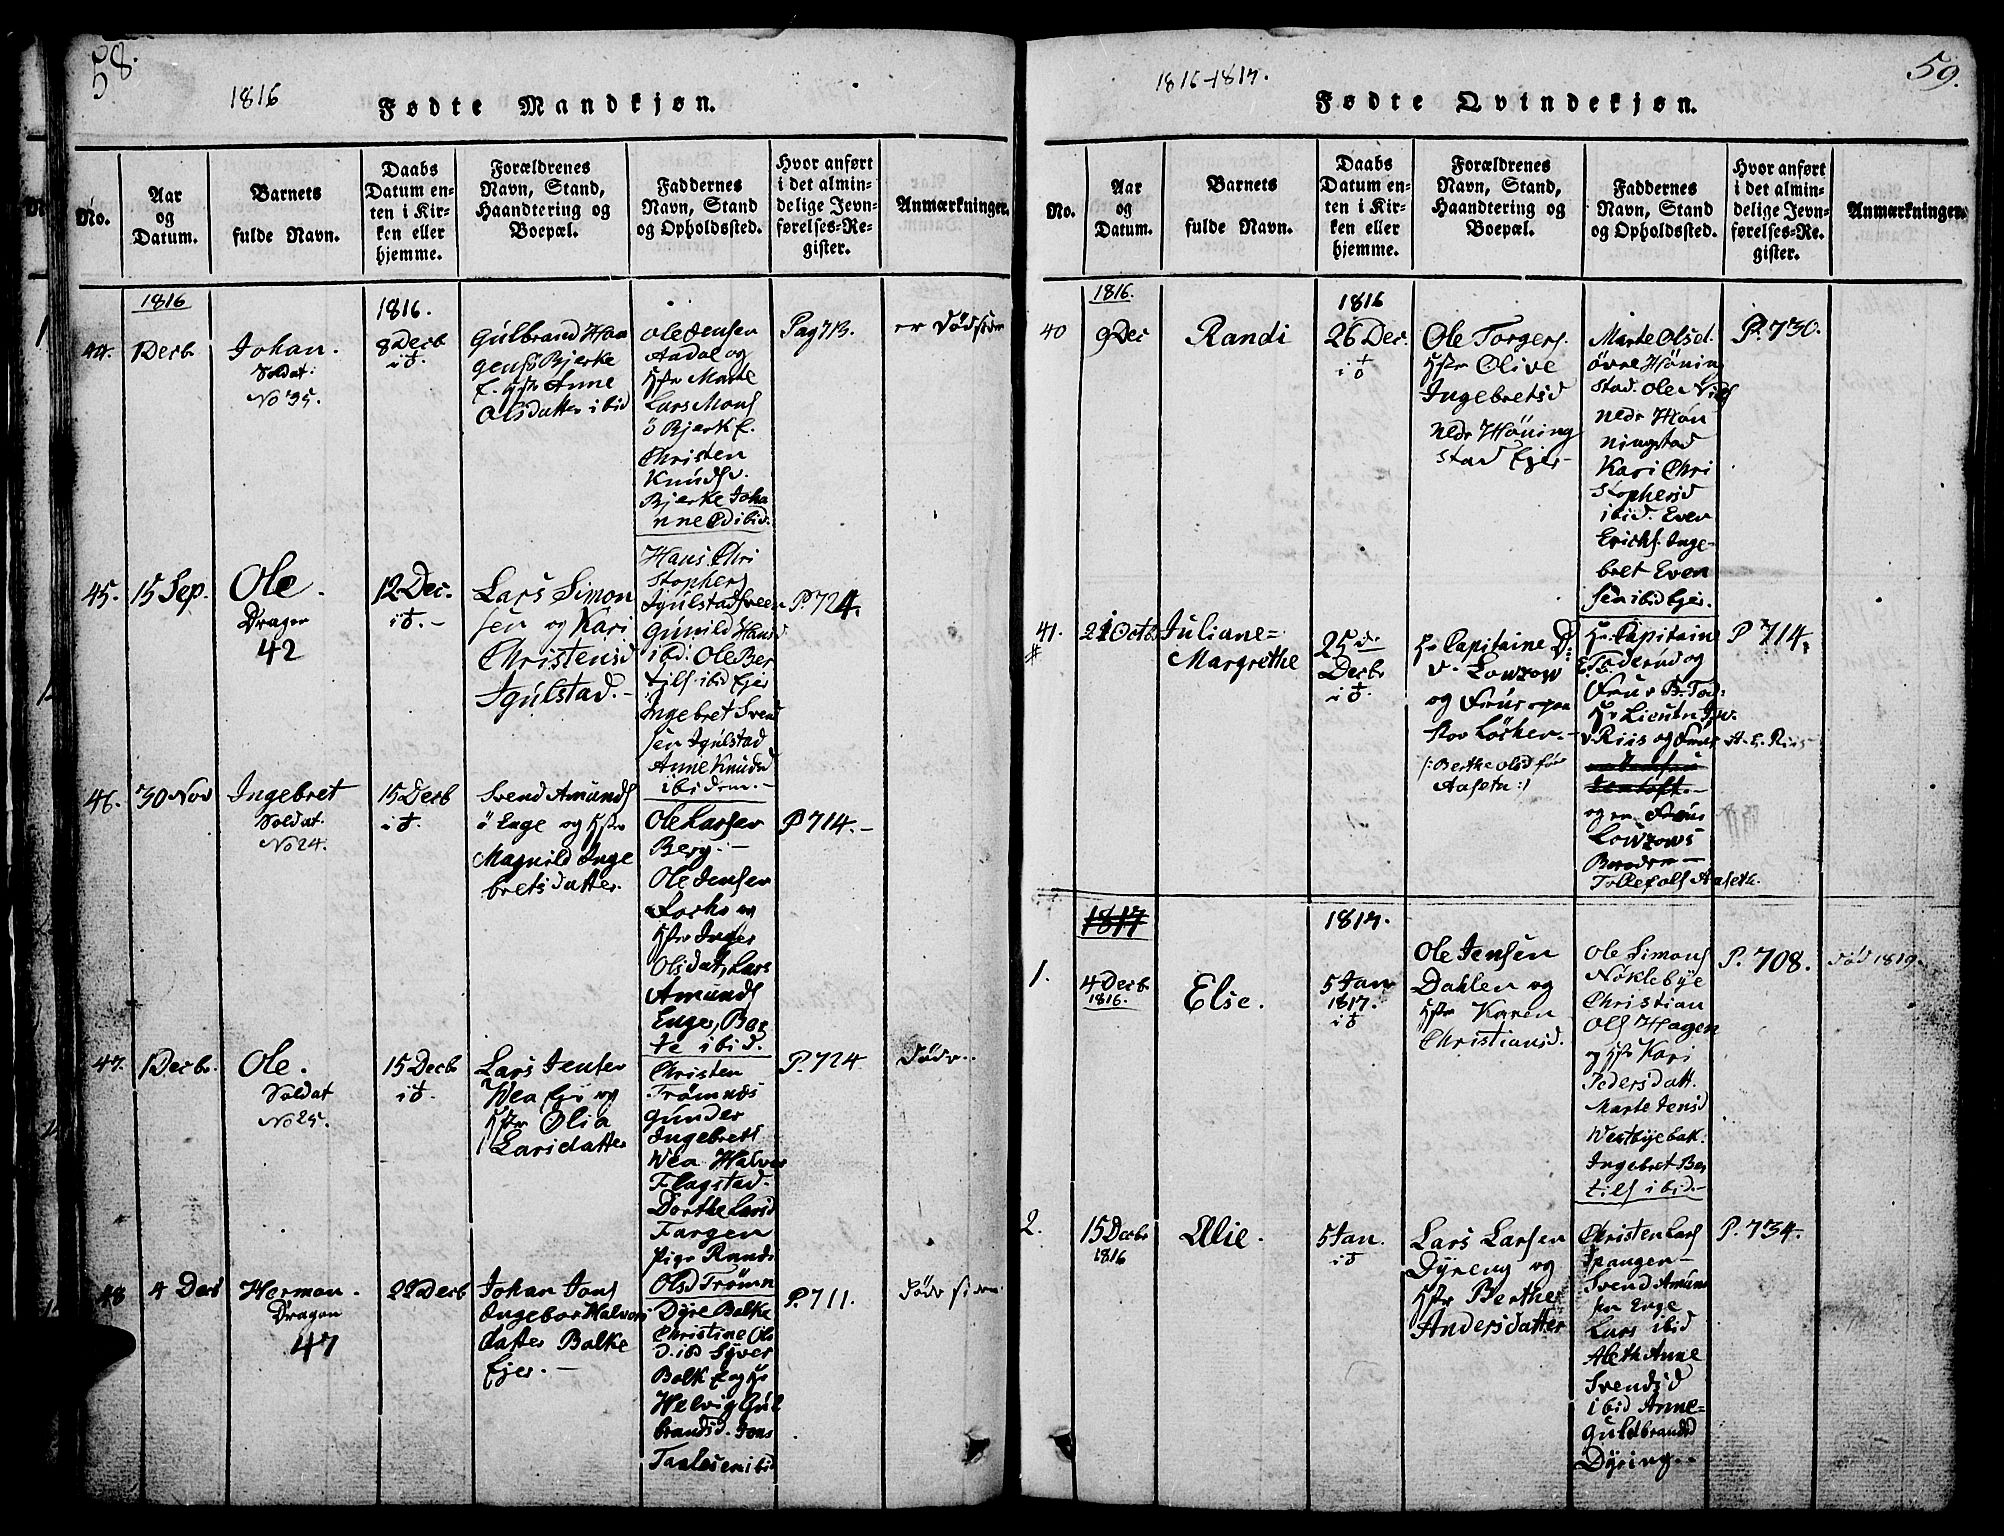 58.
1816
Fødte Mandkjøn.
No.
Aar
og
Datum.
Barnets
fulde Navn.
Daabs
Datum en-
ten i Kir-
ken eller
hjemme.
Forældrenes
Navn, Stand,
Haandtering og
Boepæl.
Faddernes
Navn, Stand
og Opholdssted.
Hvor anført
i det almin-
delige Jevn-
førelses-Re-
gister.
Anmærkninger.
1816
44.
1 Decb.
Johan.
Soldat:
No 35.
1816.
8 Decb
Gulbrand Haa
gens Bjerke
E. Hstr Anne
Olsdatter ibid
Ole Jensen
Aadal og
Hstr Marte
Lars Mons
ö Bjerk E.
Christen
Knuds
Bjerke Joha
nne D ibid.
Pag 713.
er Død siden
45.
15 Sep.
Ole.
Dragon
42
12 Dec.
Lars Simon
sen og Kari
Christensd
Igulstad.-
Hans Chri
stophers
Igulstad Sveen
Gunild Hansd
ibd. Ole Ber
tils ibid Ejer
Ingebret Svend
sen Igulstad
Anne Knudsd
ibidem.-
P. 724.
46.
30 Nov
Ingebret
Soldat.
No 24.
15 Decb
Svend Amunds
ö Enge og Hstr
Magnild Inge
bretsdatter.
Ole Larsen
Berg.-
Ole Jensen
og
Hstr Inger
Olsdat, Lars
Amunds
Enger, Ber
te ibid.
P 714.-
47.
1 Decbr.
Ole.
Soldat
No 25.
15 Decb
Lars Jensen
Wea Eje og
Hstr Olia
Larsdatter
Christen
Trømnæs
Gunder
Ingebrets
Wea Halvor
Flagstad.
Dorthe Larsd
Fargen
Pige Rande
Olsd Trømn
P. 724
Død..
48
4 Decb
Herman.
Dragon
47
22 Decb
Johan Jons
Ingebor Halvors
datter Balke
Ejer.-
Dyre Balke
Christine Ols
D. ibd Syver
Balk E og Hs
Helvig Gul
brandsd. Jens
Taalesen ibid
P. 711.
Død siden
59.
1816-1817.
Fødte Qvindekjøn.
No.
Aar
og
Datum.
Barnets
fulde Navn.
Daabs
Datum en-
ten i Kir-
ken eller
hjemme.
Forældrenes
Navn, Stand,
Haandtering og
Boepæl.
Faddernes
Navn, Stand
og Opholdssted.
Hvor anført
i det almin-
delige Jevn-
førelses-Re-
gister.
Anmærkninger.
1816.
40
9 Dec
Randi
1816
26 Dec.
Ole Torgers.
Hstr Olive
Ingebretsd
nedr Høning
stad Ejer-
Marte Olsd.
övre Höning
stad. Ole Nils
nedr Høn
ningstad
Kari Chri
stophersd
ibid. Even
Erichs. Inge-
bret Even
sen ibid Ejer.
P. 730.
41.
21 Octb.
Juliane=
Margrethe
25 d
Decb
Hr Capitaine D:
v. Lowzow
og Frue
Løcken.-
/: Berthe Olsd før
Aaseth :/
Hr Capitain
Toderud og
Frue B. Tod:
Hr Lieutn
v Riis og Frue A. E. Riis
og en Frue
Lowzows
Broder -
Tollef Ols Aaseth.
P. 714.
1817
1.
4 Decb.
1816.
Else.
1817.
5 Jan
1817.
Ole Jensen
Dahlen og
Hstr Karen
Christiansd.
Ole Simons
Nøklebye
Christian
Ols Hagen
og Hstr Kari
Pedersdatt.
Marte Jensd
Westbyebak.
Ingebret Ber
tils ibid.-
P. 708.
Død 1819.
2.
15 Decbr
1816
Alie.
5 Jan.
Lars Larsen
Dyreng og
Hstr Berthe
Andersdatter
Christen Lars
Spangen-
Svend Amun
sen Enge
Lars ibid
Aleth Anne
Svendsd
ibid Anne=
Guldbrandsd
Dyring..
P. 734.